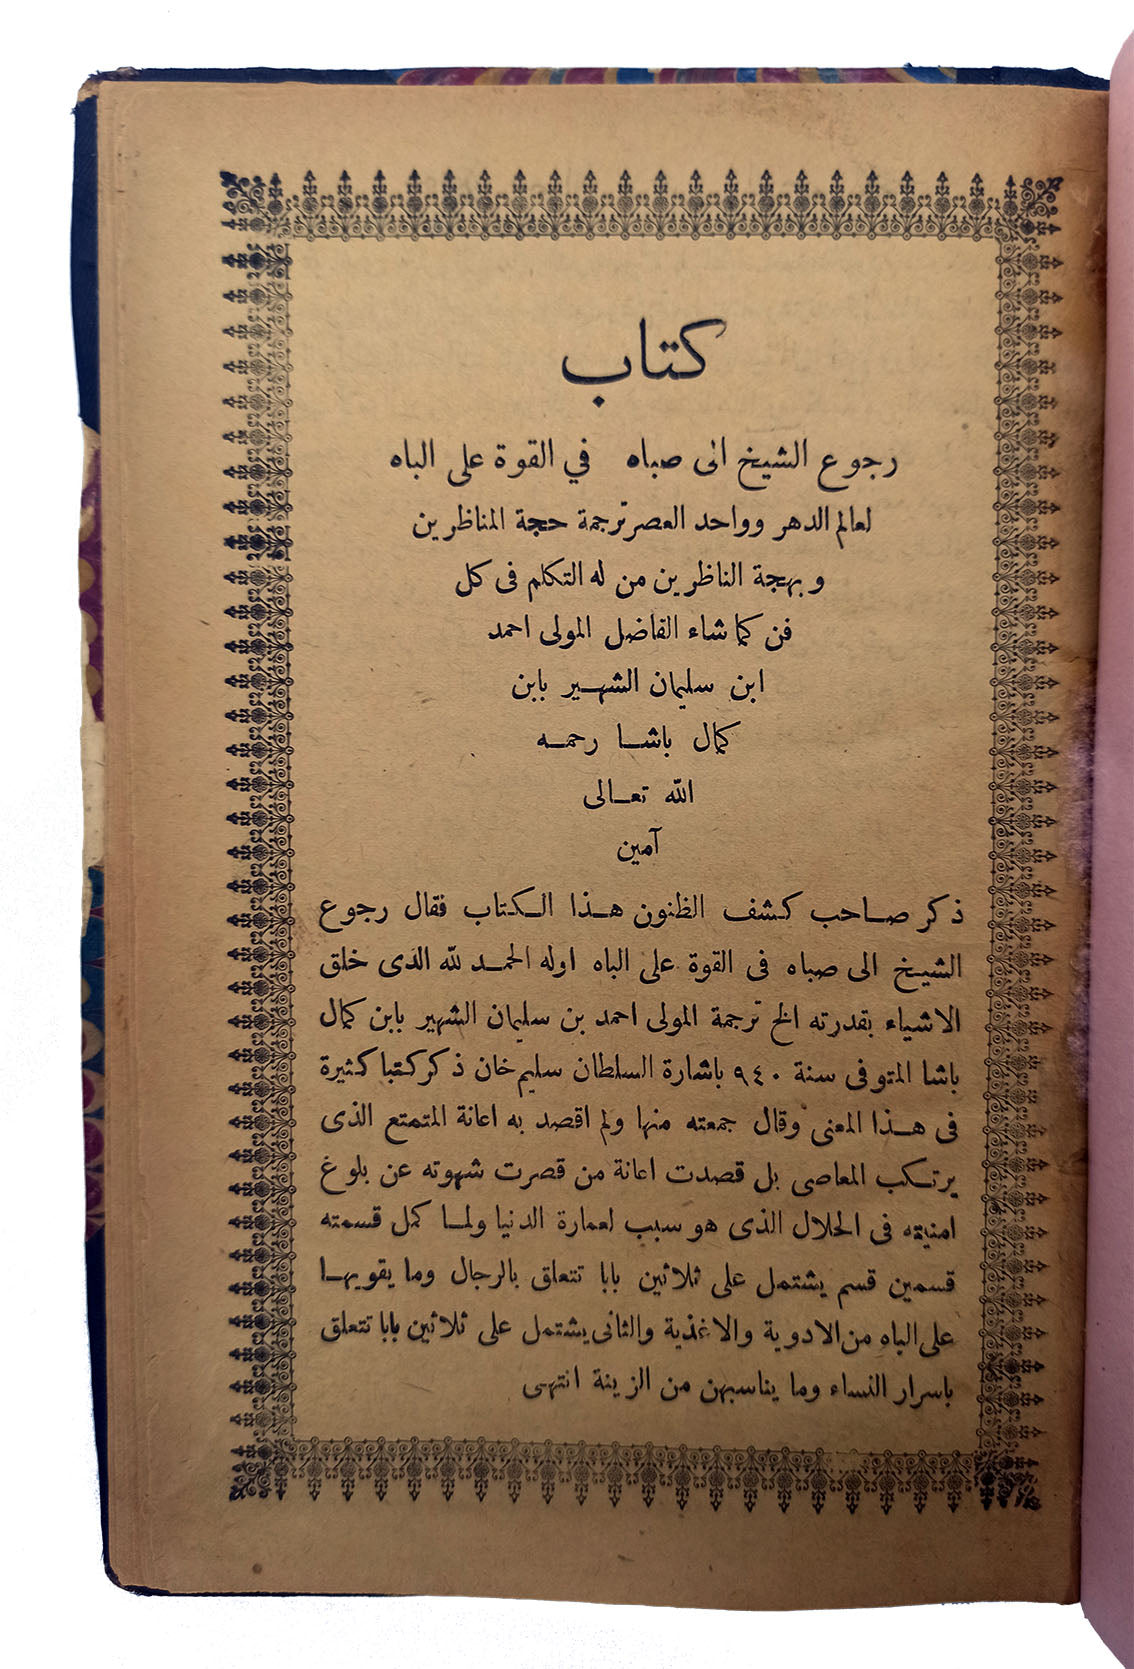 كتاب
رجوع الشيخ الى صباه في القوة على الباه
لعالم الدهر وواحد العصر ترجمة حجة المناظرين
وبهجة الناظرين من له التكلم فى كل
فن كما شاء الفاضل المولى احمد
ابن سليمان الشهير بابن
كمال باشا رحمه
الله تعالى
آمين
ذكر صاحب كشف الظنون هذا الكتاب فقال رجوع
الشيخ الى صباه فى القوة على الباه اوله الحمد لله الذى خلق
الاشياء بقدرته الخ ترجمة المولى احمد بن سليمان الشهير بابن كمال
باشا المتوفى سنة ٩٤٠ باشارة السلطان سليم خان ذكر كتبا كثيرة
فى هذا المعنى وقال جمعته منها ولم اقصد به اعانة المتمتع الذى
يرتكب المعاصى بل قصدت اعانة من قصرت شهوته عن بلوغ
امنيته فى الحلال الذى هو سبب لعمارة الدنيا ولما كمل قسمته
قسمين قسم يشتمل على ثلاثين بابا تتعلق بالرجال وما يقويها
على الباه من الادوية والاغذية والثانى يشتمل على ثلاثين بابا تتعلق
باسرار النساء وما يناسبهن من الزينة انتهى